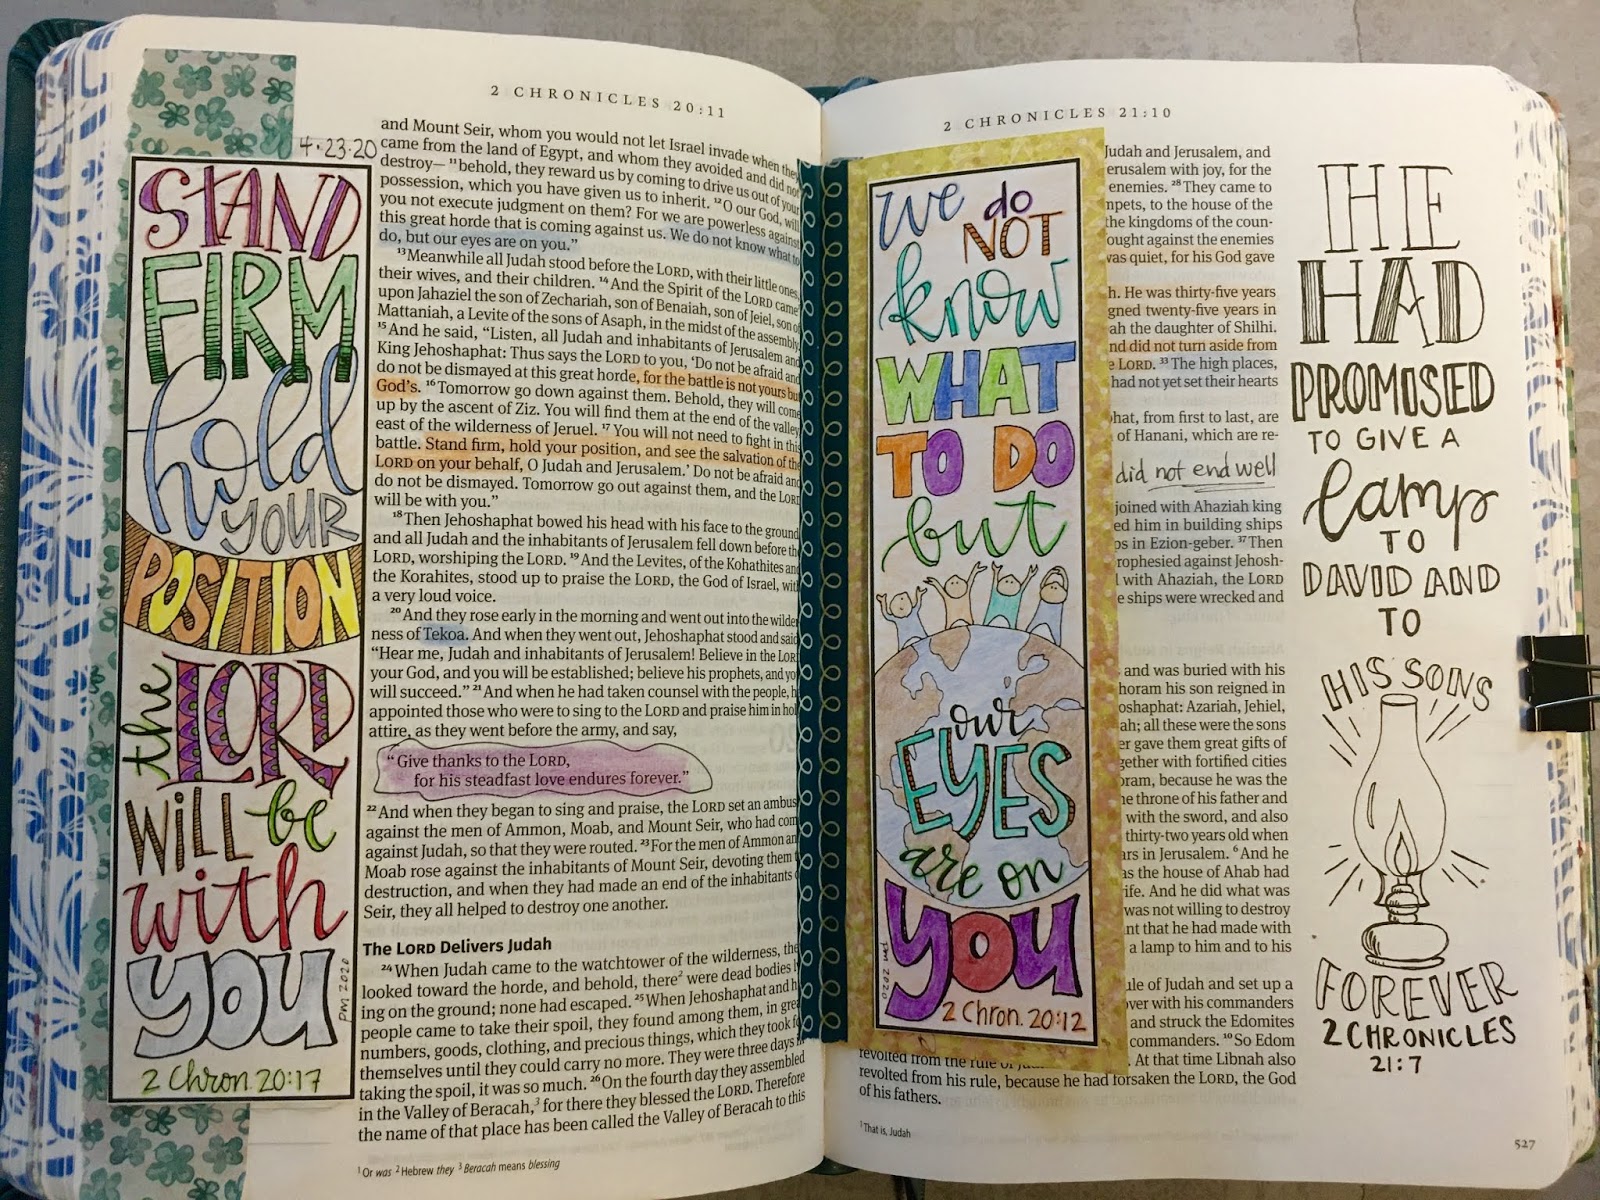 2 CHRONICLES 20:11
4·23·20
STAND
FIRM
hold
YOUR
POSITION
the LORD
WILL be
with
YOU
PM 2020
2 Chron. 20:17
and Mount Seir, whom you would not let Israel invade when they
came from the land of Egypt, and whom they avoided and did not
destroy— 11 behold, they reward us by coming to drive us out of your
possession, which you have given us to inherit. 12 O our God, will
you not execute judgment on them? For we are powerless against
this great horde that is coming against us. We do not know what to
do, but our eyes are on you.”
13 Meanwhile all Judah stood before the LORD, with their little ones,
their wives, and their children. 14 And the Spirit of the LORD came
upon Jahaziel the son of Zechariah, son of Benaiah, son of Jeiel, son of
Mattaniah, a Levite of the sons of Asaph, in the midst of the assembly.
15 And he said, “Listen, all Judah and inhabitants of Jerusalem and
King Jehoshaphat: Thus says the LORD to you, ‘Do not be afraid and
do not be dismayed at this great horde, for the battle is not yours but
God’s. 16 Tomorrow go down against them. Behold, they will come
up by the ascent of Ziz. You will find them at the end of the valley,
east of the wilderness of Jeruel. 17 You will not need to fight in this
battle. Stand firm, hold your position, and see the salvation of the
LORD on your behalf, O Judah and Jerusalem.’ Do not be afraid and
do not be dismayed. Tomorrow go out against them, and the LORD
will be with you.”
18 Then Jehoshaphat bowed his head with his face to the ground
and all Judah and the inhabitants of Jerusalem fell down before the
LORD, worshiping the LORD. 19 And the Levites, of the Kohathites and
the Korahites, stood up to praise the LORD, the God of Israel, with
a very loud voice.
20 And they rose early in the morning and went out into the wilder
ness of Tekoa. And when they went out, Jehoshaphat stood and said
“Hear me, Judah and inhabitants of Jerusalem! Believe in the LOR
your God, and you will be established; believe his prophets, and yo
will succeed.” 21 And when he had taken counsel with the people, h
appointed those who were to sing to the LORD and praise him in hol
attire, as they went before the army, and say,
“Give thanks to the LORD,
for his steadfast love endures forever.”
22 And when they began to sing and praise, the LORD set an ambus
against the men of Ammon, Moab, and Mount Seir, who had com
against Judah, so that they were routed. 23 For the men of Ammon an
Moab rose against the inhabitants of Mount Seir, devoting them
destruction, and when they had made an end of the inhabitants
Seir, they all helped to destroy one another.
The LORD Delivers Judah
24 When Judah came to the watchtower of the wilderness, the
looked toward the horde, and behold, there2 were dead bodies l
ing on the ground; none had escaped. 25 When Jehoshaphat and h
people came to take their spoil, they found among them, in grea
numbers, goods, clothing, and precious things, which they took fo
themselves until they could carry no more. They were three days in
taking the spoil, it was so much. 26 On the fourth day they assembled
in the Valley of Beracah,3 for there they blessed the LORD. Therefore
the name of that place has been called the Valley of Beracah to this
1 Or was 2 Hebrew they 3 Beracah means blessing
2 CHRONICLES 21:10
we do
NOT
know
WHAT
TO DO
but
our
EYES
are on
YOU
pm 2020
2 Chron. 20:12
Judah and Jerusalem, and
erusalem with joy, for the
enemies. 28 They came to
mpets, to the house of the
the kingdoms of the coun-
ought against the enemies
was quiet, for his God gave
h. He was thirty-five years
gned twenty-five years in
ah the daughter of Shilhi.
nd did not turn aside from
e LORD. 33 The high places,
had not yet set their hearts
hat, from first to last, are
of Hanani, which are re-
did not end well
joined with Ahaziah king
ed him in building ships
ps in Ezion-geber. 37 Then
rophesied against Jehosh-
l with Ahaziah, the LORD
e ships were wrecked and
and was buried with his
horam his son reigned in
oshaphat: Azariah, Jehiel,
ah; all these were the sons
er gave them great gifts of
gether with fortified cities
oram, because he was the
he throne of his father and
with the sword, and also
thirty-two years old when
ars in Jerusalem. 6 And he
as the house of Ahab had
ife. And he did what was
was not willing to destroy
nt that he had made with
a lamp to him and to his
ule of Judah and set up a
over with his commanders
and struck the Edomites
commanders. 10 So Edom
revolted from the rule of
At that time Libnah also
revolted from his rule, because he had forsaken the LORD, the God
of his fathers.
1 That is, Judah
HE
HAD
PROMISED
TO GIVE A
lamp
TO
DAVID AND
TO
HIS SONS
FOREVER
2 CHRONICLES
21:7
527